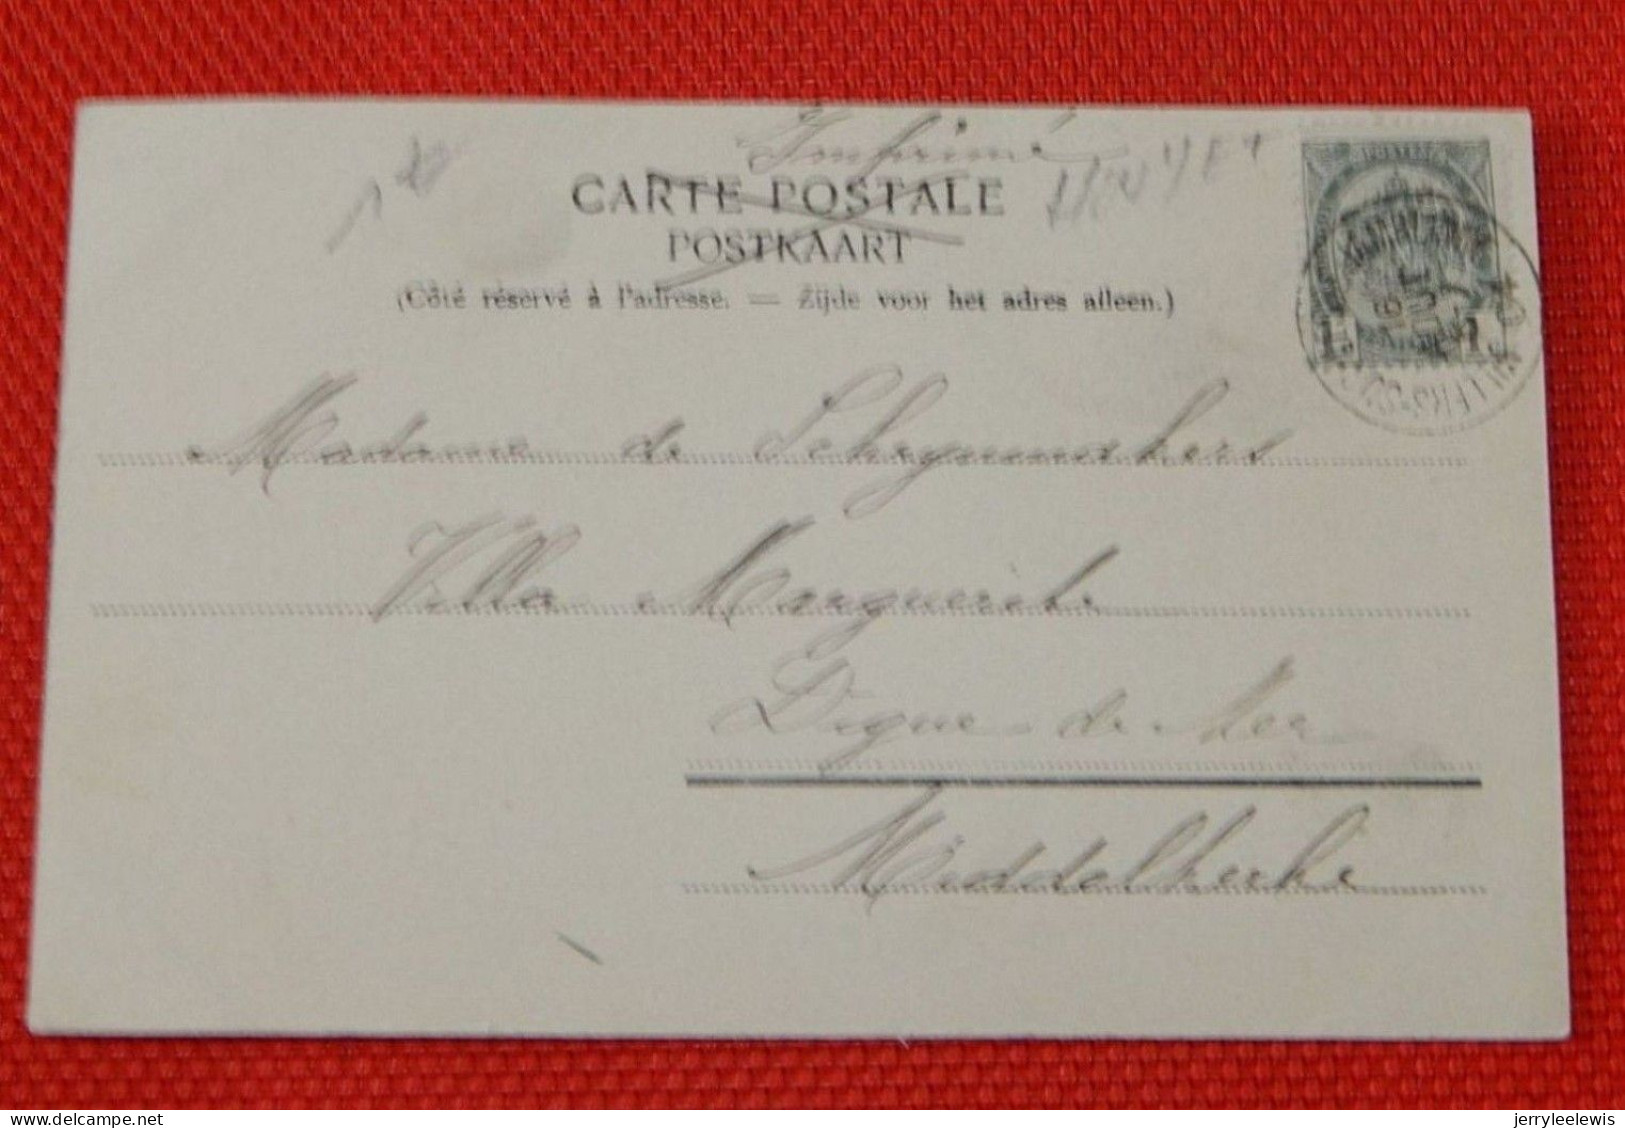 Imprimé
CARTE POSTALE
POSTKAART
(Côté réservé à l'adresse. — Zijde voor het adres alleen.)
Madame de Scheymakers
Villa Marguerite
Digue de Mer
Middelkerke
POSTES
1 1
jerryleelewis